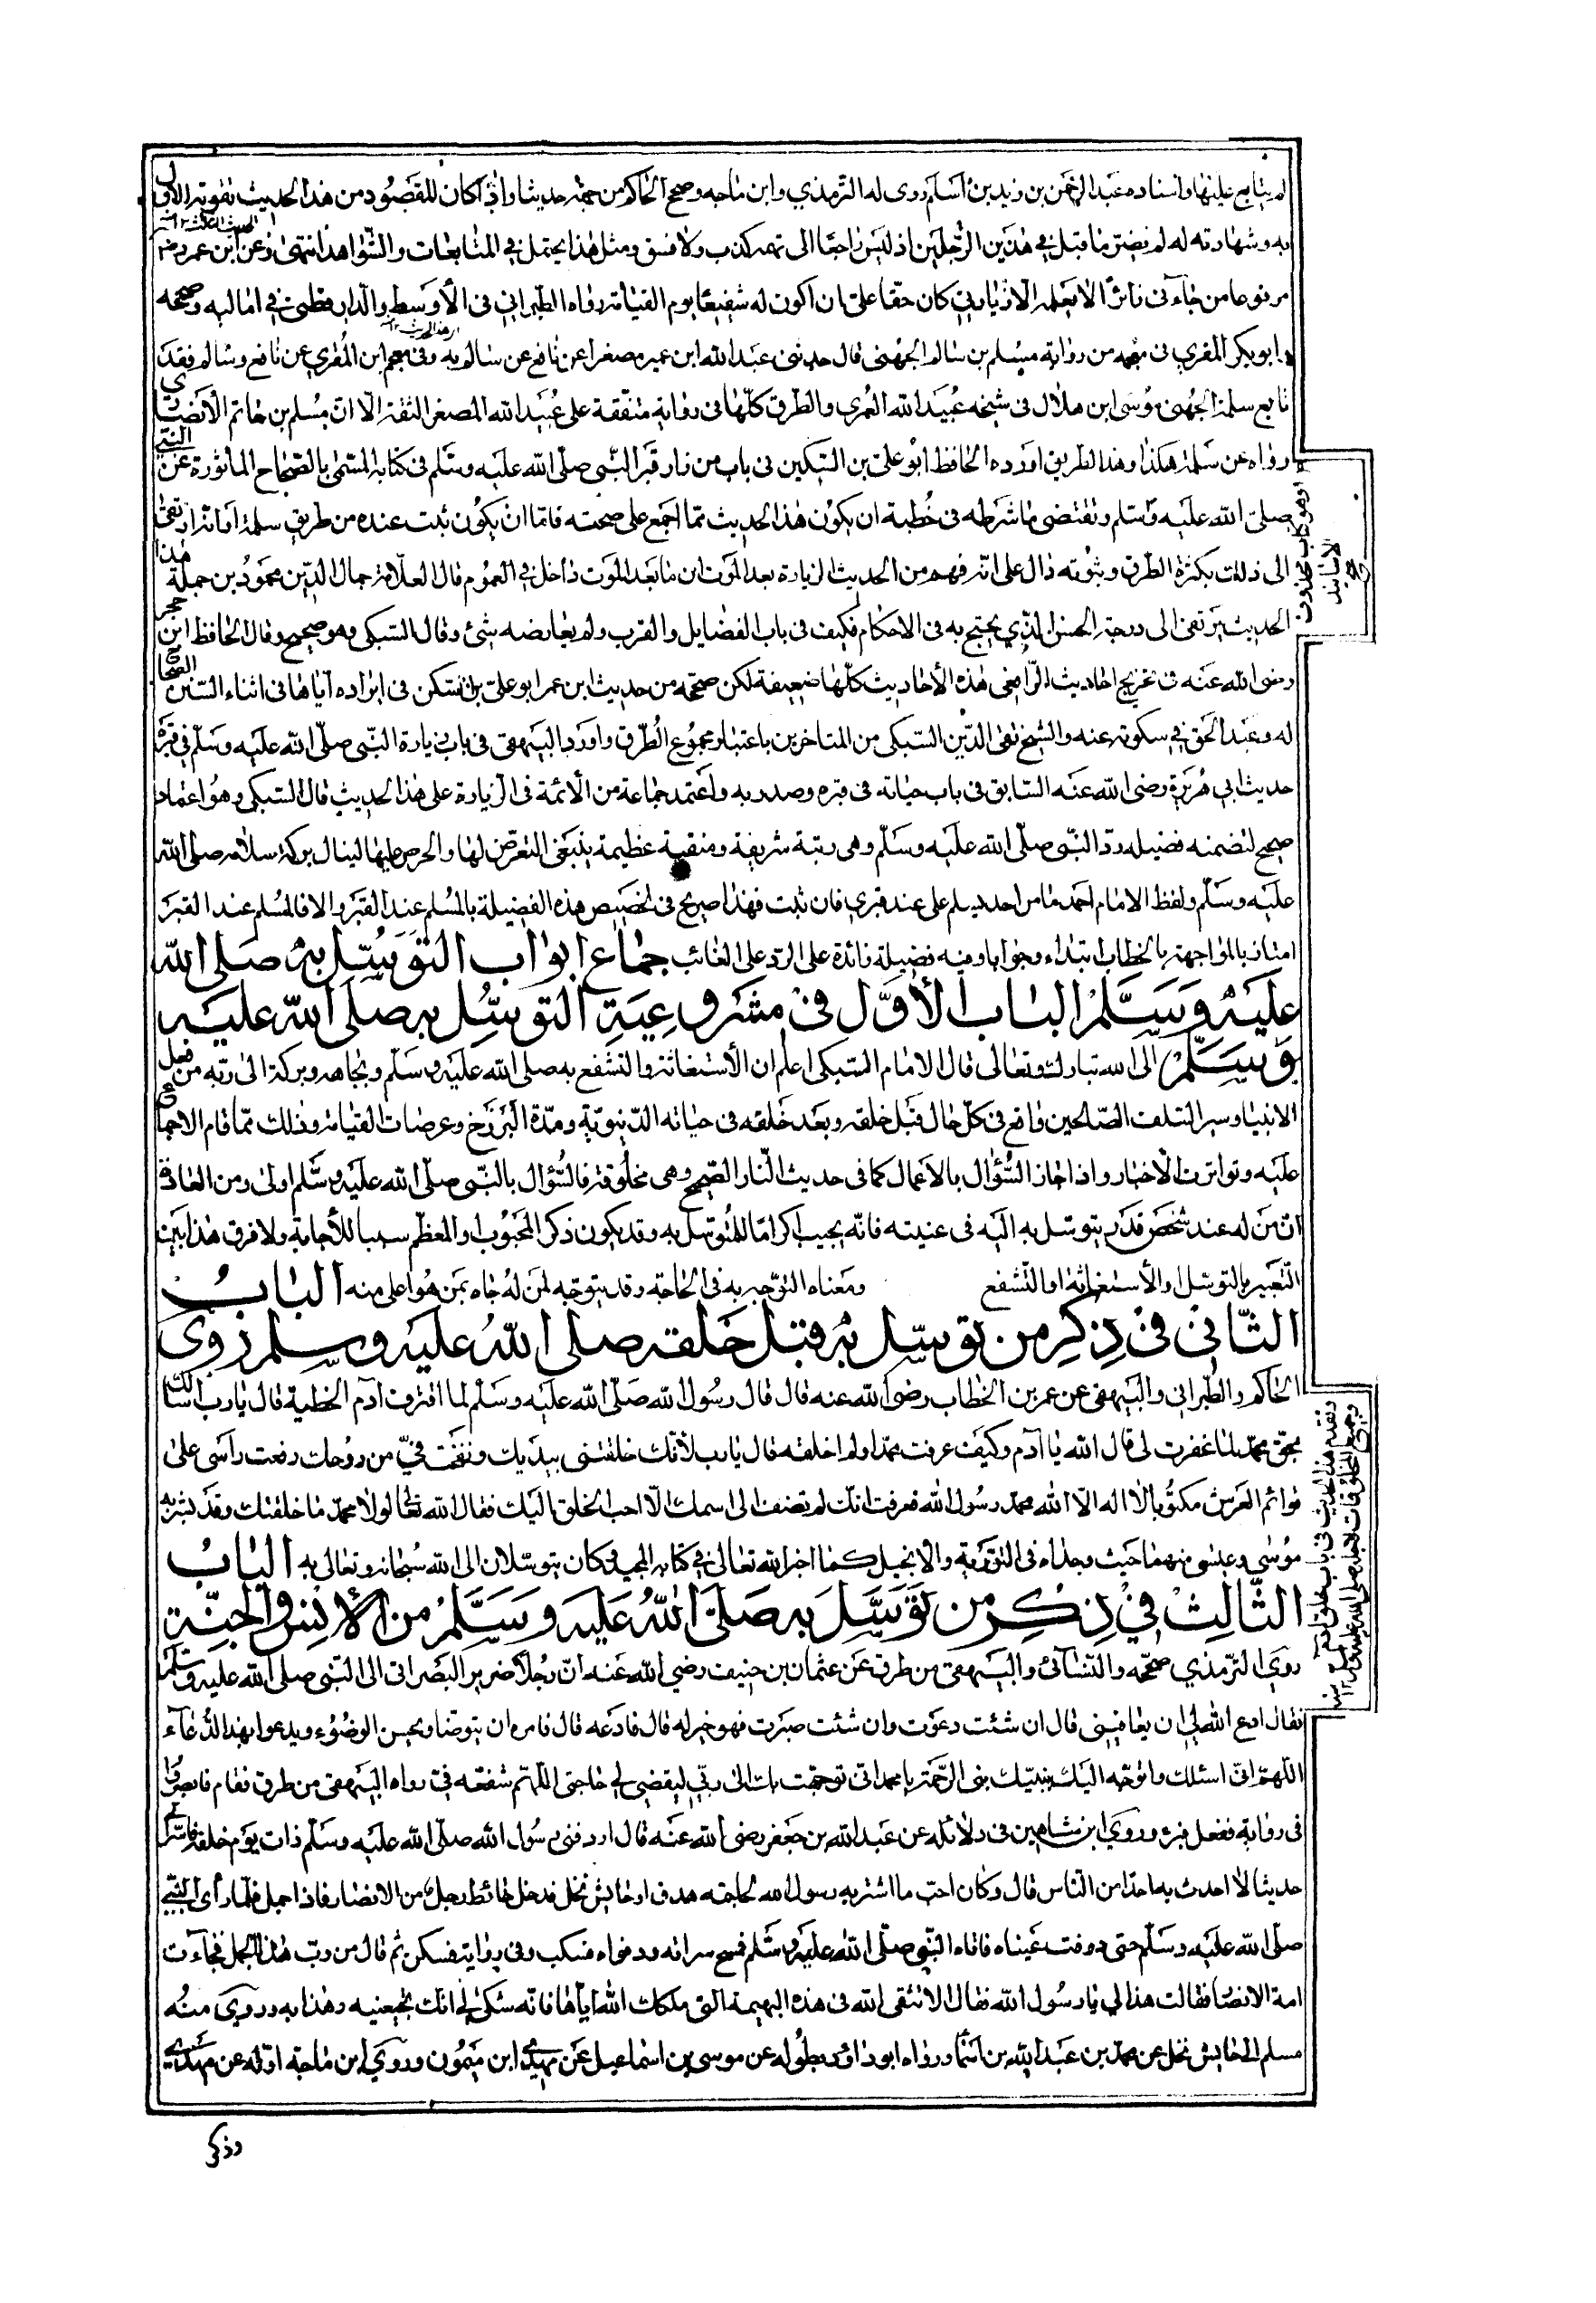 لم يتابع عليها واسناده عبد الرحمن بن زيد بن اسلم روى له الترمذي وابن ماجه وصحح الحاكم من جهته حديثا واذا كان المقصود من هذا الحديث تقوية الاول
به وشهادته له لم يضر ما قيل في هذين الرجلين اذ ليس راجعا الى تهمة كذب ولا فسق ومثل هذا يحتمل في المتابعات والشواهد انتهى وعن ابن عمر رضه
مرفوعا من جاءني زائرا لا يعلمه الا زيارتي كان حقا علي ان اكون له شفيعا يوم القيامة رواه الطبراني في الاوسط والدار قطني في اماليه وصححه
ابو بكر المقري في معجمه من رواية مسلم بن سالم الجهني قال حدثني عبد الله ابن عمير مصغرا عن نافع عن سالم به وفي معجم ابن المقري عن نافع وسالم فقد
تابع سلمة الجهني موسى ابن هلال في شيخه عبيد الله العمري والطرق كلها في رواية متفقة على عبيد الله المصغر الثقة الا ان مسلم بن حاتم الانصاري
رواه عن سلمة هكذا وهذا الطريق اورده الحافظ ابو علي بن السكين في باب من زار قبر النبي صلى الله عليه وسلم في كتابه المسمى بالصحاح المأثورة عن النبي
صلى الله عليه وسلم ونقتضي ما شرطه في خطبة ان يكون هذا الحديث مما اجمع على صحته فاما ان يكون ثبت عنده من طريق سلمة او انه ارتقى
الى ذلك بكثرة الطرق وبثوته دال على انه فهم من الحديث الزيارة بعد الموت ان ما بعد الموت داخل في العموم قال العلامة جمال الدين محمود بن جملة هذا
الحديث يرتقي الى درجة الحسن الذي يحتج به في الاحكام فكيف في باب الفضايل والقرب ولم يعارضه شئ وقال السبكي وهو صحيح وقال الحافظ ابن حجر
رضى الله عنه في تخريج احاديث الرافعي هذه الأحاديث كلها ضعيفة لكن صححه من حديث ابن عمر ابو علي بن السكن في ايراده اياها في اثناء السنن الصحاح
له وعبد الحق في سكوته عنه والشيخ تقى الدين السبكى من المتاخرين باعتبار مجموع الطرق واورد البيهقى في باب زيارة النبى صلى الله عليه وسلم في قبره
حديث ابي هريرة رضى الله عنه السابق في باب حياته في قبره وصدر به واعتمد جماعة من الائمة في الزيارة على هذا الحديث قال السبكى وهو اعتماد
صحيح لتضمنه فضيلة رد النبى صلى الله عليه وسلم وهى رتبة شريفة ومنقبة عظيمة ينبغى التعرض لها والحرص عليها لينال بركة سلامه صلى الله
عليه وسلم ولفظ الامام احمد ما من احد يسلم على عند قبري فان ثبت فهذا صريح في تخصيص هذه الفضيلة بالمسلم عند القبر والا فالمسلم عند القبر
امتاز بالمواجهة بالخطاب ابتداء وجوابا وفيه فضيلة زائدة على الرد على الغائب جماع ابواب التوسل به صلى الله
عليه وسلم الباب الأول في مشروعية التوسل به صلى الله عليه
وسلم الى الله تبارك وتعالى قال الامام السبكي اعلم ان الأستغاثة والتشفع به صلى الله عليه وسلم وبجاهه وبركته الى ربه من فعل
الانبيا وسير السلف الصالحين واقع في كل حال قبل خلقه وبعد خلقه في حياته الدنيوية ومدة البرزخ وعرصات القيامة وذلك مما قام الاجماع
عليه وتواترت الاخبار واذا جاز السؤال بالاعمال كما في حديث النار الصحيح وهى مخلوقة فالسؤال بالنبي صلى الله عليه وسلم اولى ومن العادة
ان من له عند شخص قدر يتوسل به اليه في غيبته فانه يجيب اكراما للمتوسل به وقد يكون ذكر المحبوب او المعظم سببا للأجابة ولا فرق هذا بين
التعبير بالتوسل او الأستغاثة او التشفع ومعناه التوجه به في الحاجة وقد يتوجه لمن له جاه بمن هو اعلى منه الباب
الثاني في ذكر من توسل به قبل خلقه صلى الله عليه وسلم روى
الحاكم والطبراني والبيهقى عن عمر بن الخطاب رضى الله عنه قال قال رسول الله صلى الله عليه وسلم لما اقترف آدم الخطية قال يا رب اسألك
بحق محمد لما غفرت لى قال الله يا آدم وكيف عرفت محمدا ولم اخلقه قال يا رب لأنك خلقتنى بيديك ونفخت في من روحك رفعت راسى على
قوائم العرش مكتوبا لا اله الا الله محمد رسول الله فعرفت انك لم تضف الى اسمك الا احب الخلق اليك فقال الله تعالى لولا محمد ما خلقتك وقد بشر به
موسى وعيسى منهما حيث وجداه في التورية والانجيل كما اخبر الله تعالى في كتابه المجيد فكان يتوسلان الى الله سبحانه وتعالى به الباب
الثالث في ذكر من توسل به صلى الله عليه وسلم من الأنس والجنة
روى الترمذي صححه والنسائي والبيهقى من طرق عن عثمان بن حنيف رضي الله عنه ان رجلا ضرير البصر اتى الى النبى صلى الله عليه وسلم
فقال ادع الله لي ان يعافيني قال ان شئت دعوت وان شئت صبرت فهو خير له قال فادعه قال فامره ان يتوضا ويحسن الوضوء ويدعوا بهذا الدعاء
اللهم انى اسئلك واتوجه اليك بنبيك نبى الرحمة يا محمد انى توجهت بك الى ربي ليقضي لي حاجتى اللهم شفعه في رواه البيهقى من طرق فقام فابصر وا
في رواية ففعل فبرء وروي ابن شاهين في دلائله عن عبد الله بن جعفر رضى الله عنه قال اردفني رسول الله صلى الله عليه وسلم ذات يوم خلفه فاسر الي
حديثا لا احدث به احدا من الناس قال وكان احب ما استتر به رسول الله لحاجته هدف او حايش نخل فدخل حائط رجل من الانصار فاذا جمل فلما رأى النبي
صلى الله عليه وسلم حتى ذرفت عيناه فاتاه النبي صلى الله عليه وسلم فمسح سراته وذفراه فسكب وفي رواية فسكن ثم قال من رب هذا الجمل فجاءت
امة الانصار فقالت هذا لي يا رسول الله فقال الا تتقى الله في هذه البهيمة التى ملكك الله اياها فانه شكى الي انك تجيعنيه وهذا به وروي منه
مسلم الى حايش نخل عن محمد بن عبد الله بن اسما ورواه ابو داؤد بطوله عن موسى بن اسماعيل عن مهدى ابن ميمون وروي ابن ماجة اوله عن مهدى
وتقدم هذا الحديث في باب خلق آدم
وجميع المخلوقات لاجله صلى الله عليه وسلم
وذكر